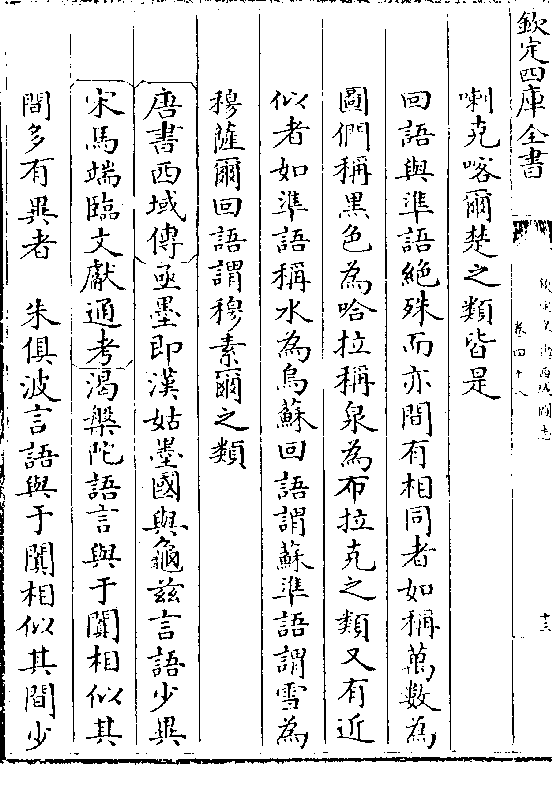 欽定四庫全書
欽定皇輿西域圖志
卷四十八
十三
喇克喀爾楚之類皆是
回語與準語絶殊而亦間有相同者如稱萬數為
圖們稱黑色為哈拉稱泉為布拉克之類又有近
似者如準語稱水為烏蘇回語謂蘇準語謂雪為
穆薩爾回語謂穆素爾之類
唐書西域傳亟墨即漢姑墨國與龜兹言語少異
宋馬端臨文獻通考渴槃陀語言與于闐相似其
間多有異者 朱俱波言語與于闐相似其間少